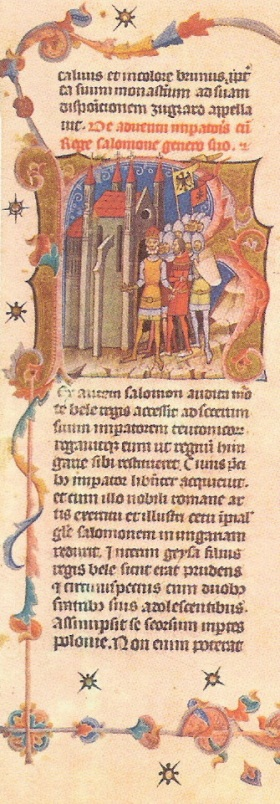 caluus et in colore brunus, ipt
ea suum monasterium ad suam
disposicionem zugzard appella
uit. De aduentu impatoris cu
Rege salomone genero suo.
Ex autem salomon audita mo
te bele regis accessit ad socerum
suum impatorem teutonicor
rogauitqz eum ut regnu hun
garie sibi restitueret. Cuius pci
bz impator libenter acquieuit.
et cum illo nobili romane ar
tis exercitu et illustri cetu ipial
glie salomonem in ungariam
reduxit. Interim geysa filius
regis bele sicut erat prudens
et circumspectus cum duobz
fratribz suis adolescentibus.
assumpsit se seorsum in ptes
polonie. Non enim poterat